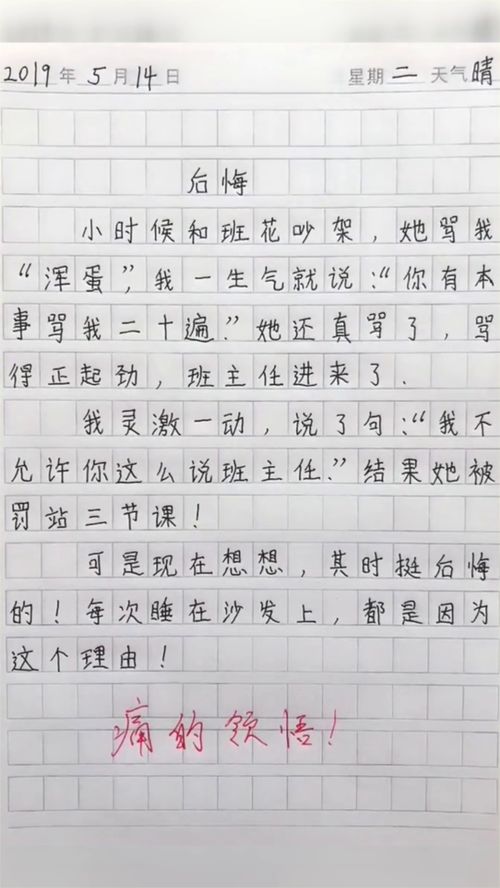 2019年5月14日 星期二 天气晴
后悔
小时候和班花吵架，她骂我
“浑蛋”，我一生气就说：“你有本
事骂我二十遍.”她还真骂了，骂
得正起劲，班主任进来了.
我灵激一动，说了句：“我不
允许你这么说班主任.”结果她被
罚站三节课！
可是现在想想，其时挺后悔
的！每次睡在沙发上，都是因为
这个理由！
痛的领悟！